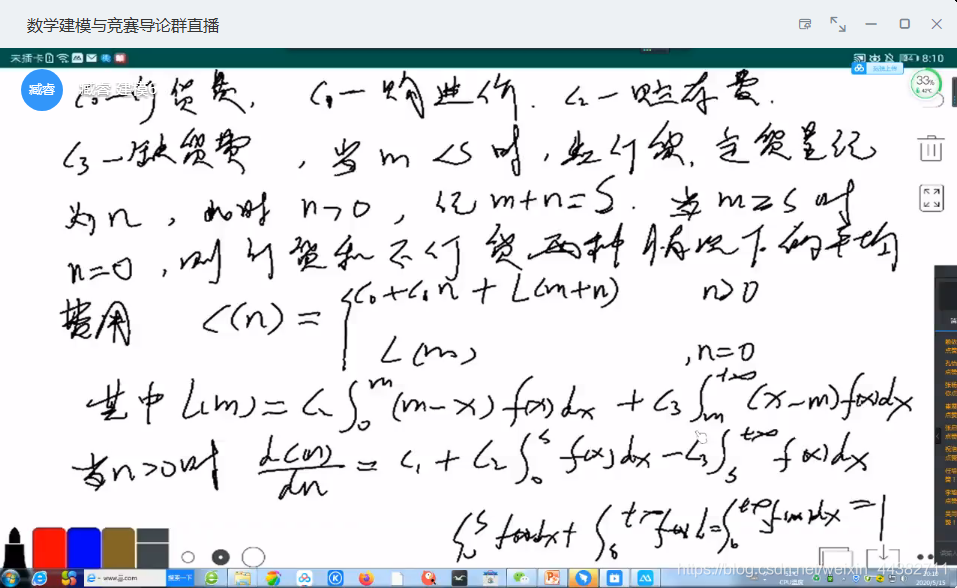 数学建模与竞赛导论群直播
未插卡 8:10
臧睿
33%
42℃
C₀—订货费, C₁—购进价. C₂—贮存费.
C₃—缺货费, 当m<S时, 要订货, 定货量记
为n, 此时 n>0, 记m+n=S. 当m≥S时
n=0, 则订货和不订货两种情况下的平均
费用 C(n) = { C₀+C₁n + L(m+n) n>0
L(m) , n=0
其中 L(m) = C₂∫₀ᵐ(m-x)f(x)dx + C₃∫ₘ⁺∞(x-m)f(x)dx
当n>0时 dC(n)/dn = C₁ + C₂∫₀ˢ f(x)dx - C₃∫ₛ⁺∞ f(x)dx
∫₀ˢ f(x)dx + ∫ₛ⁺∞ f(x)d = ∫₀⁺∞ f(x)dx = 1
www.jj.com
https://blog.csdn.net/weixin_44382711
2020/5/15